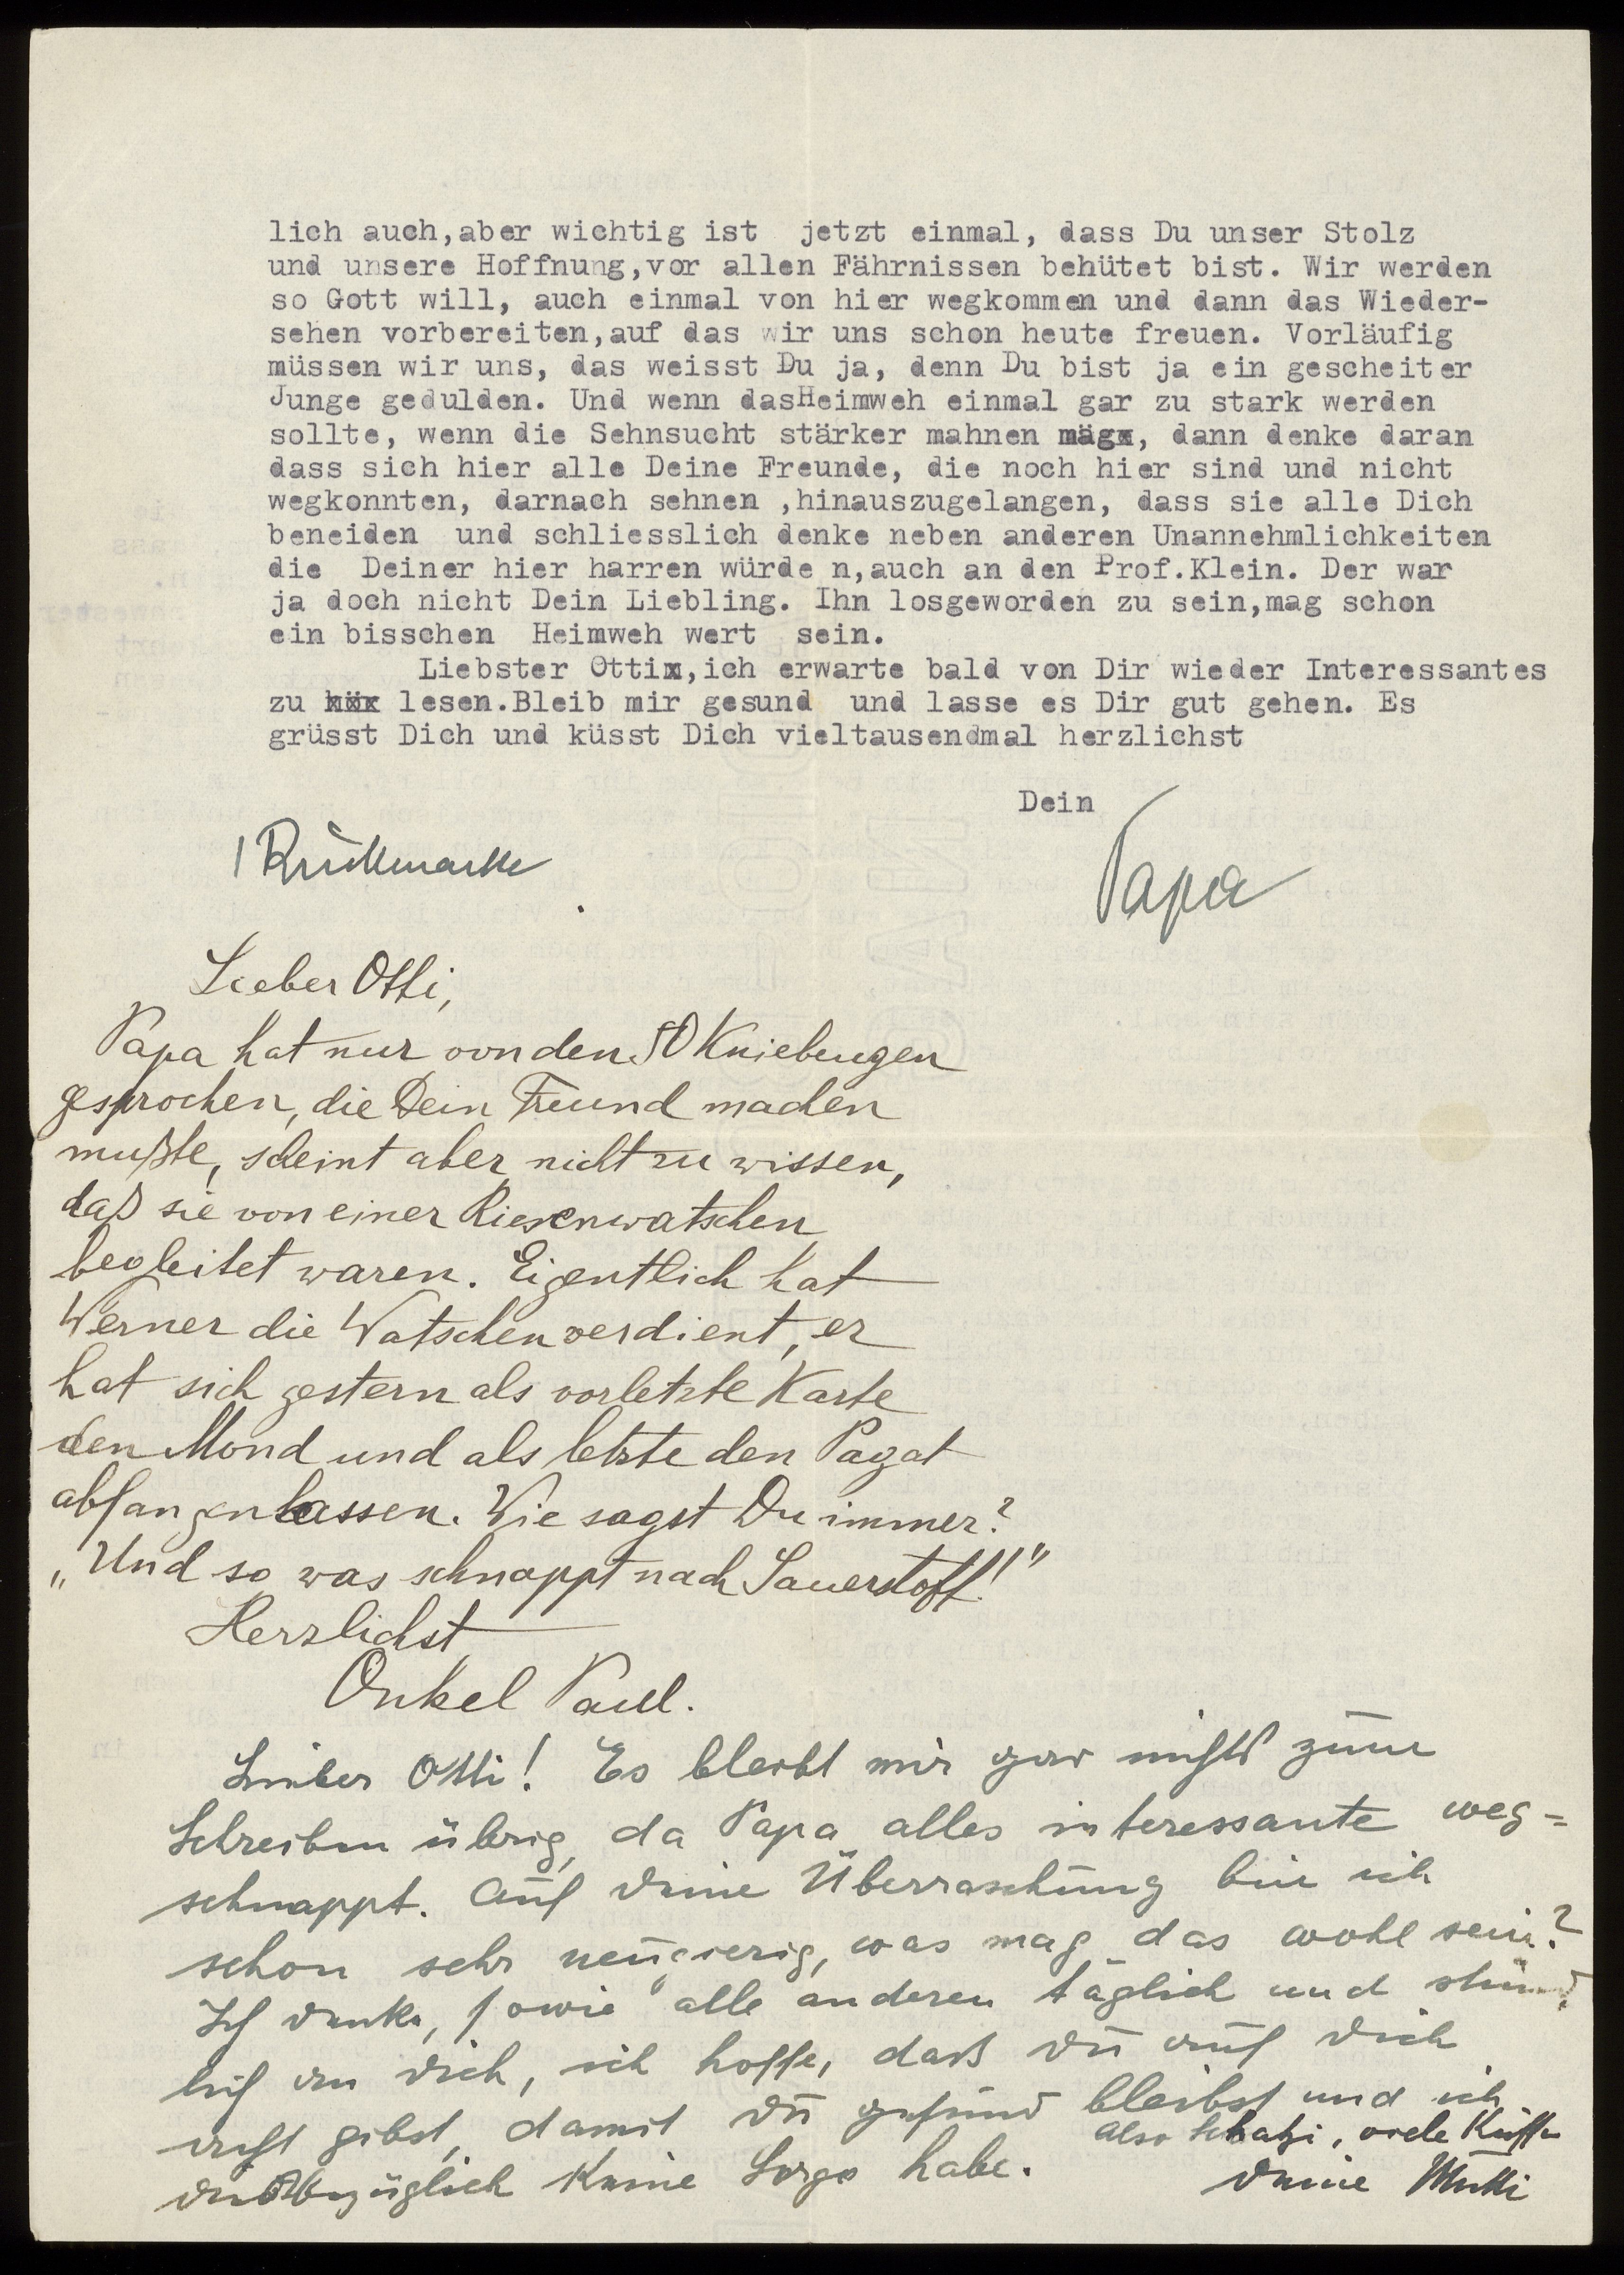 lich auch,aber wichtig ist  jetzt einmal, dass Du unser Stolz
und unsere Hoffnung,vor allen Fährnissen behütet bist. Wir werden
so Gott will, auch einmal von hier wegkommen und dann das Wieder-
sehen vorbereiten,auf das wir uns schon heute freuen. Vorläufig
müssen wir uns, das weisst Du ja, denn Du bist ja ein gescheiter
Junge gedulden. Und wenn dasHeimweh einmal gar zu stark werden
sollte, wenn die Sehnsucht stärker mahnen mägx, dann denke daran
dass sich hier alle Deine Freunde, die noch hier sind und nicht
wegkonnten, darnach sehnen ,hinauszugelangen, dass sie alle Dich
beneiden  und schliesslich denke neben anderen Unannehmlichkeiten
die  Deiner hier harren würde n,auch an den Prof.Klein. Der war
ja doch nicht Dein Liebling. Ihn losgeworden zu sein,mag schon
ein bisschen  Heimweh wert  sein.
Liebster Ottix,ich erwarte bald von Dir wieder Interessantes
zu köx lesen.Bleib mir gesund  und lasse es Dir gut gehen. Es
grüsst Dich und küsst Dich vieltausendmal herzlichst
Dein
1 Rückmarke
Papa
Lieber Otti,
Papa hat nur von den 50 Kniebeugen
gesprochen, die Dein Freund machen
mußte, scheint aber nicht zu wissen,
daß sie von einer Riesenwatschen
begleitet waren. Eigentlich hat
Werner die Watschen verdient, er
hat sich gestern als vorletzte Karte
den Mond und als letzte den Pagat
abfangen lassen. Wie sagst Du immer?
„Und so was schnappt nach Sauerstoff!"
Herzlichst
Onkel Paul.
Lieber Otti! Es bleibt mir gar nichts zum
Schreiben übrig, da Papa alles interessante weg=
schnappt. Auf Deine Überraschung bin ich
schon sehr neugierig, was mag das wohl sein?
Ich denke, sowie alle anderen täglich und stünd
lich an Dich, ich hoffe, daß Du auf Dich
acht gibst, damit Du gesund bleibst und ich
diesbezüglich keine Sorge habe.
Also Schatzi, viele Küsse
Deine Mutti